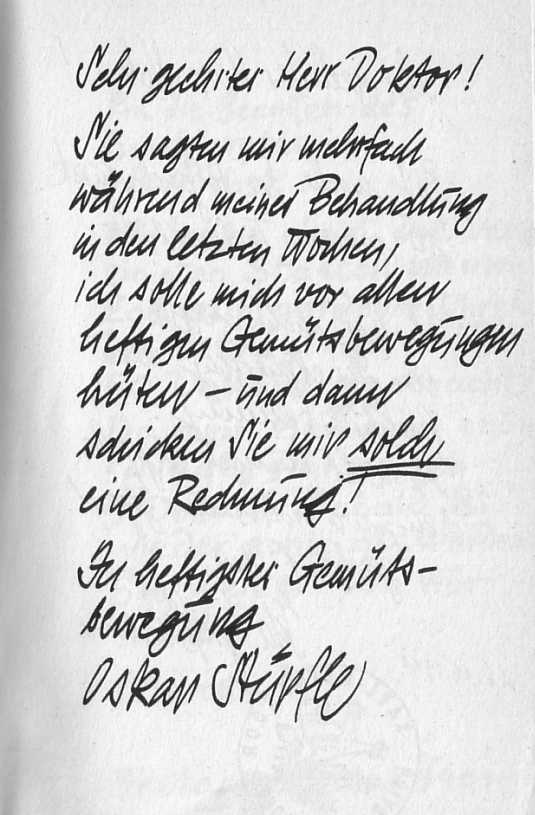 Sehr geehrter Herr Doktor!
Sie sagten mir mehrfach
während meiner Behandlung
in den letzten Wochen,
ich solle mich vor allen
heftigen Gemütsbewegungen
hüten – und dann
schicken Sie mir solch
eine Rechnung!
In heftigster Gemüts-
bewegung
Oskar